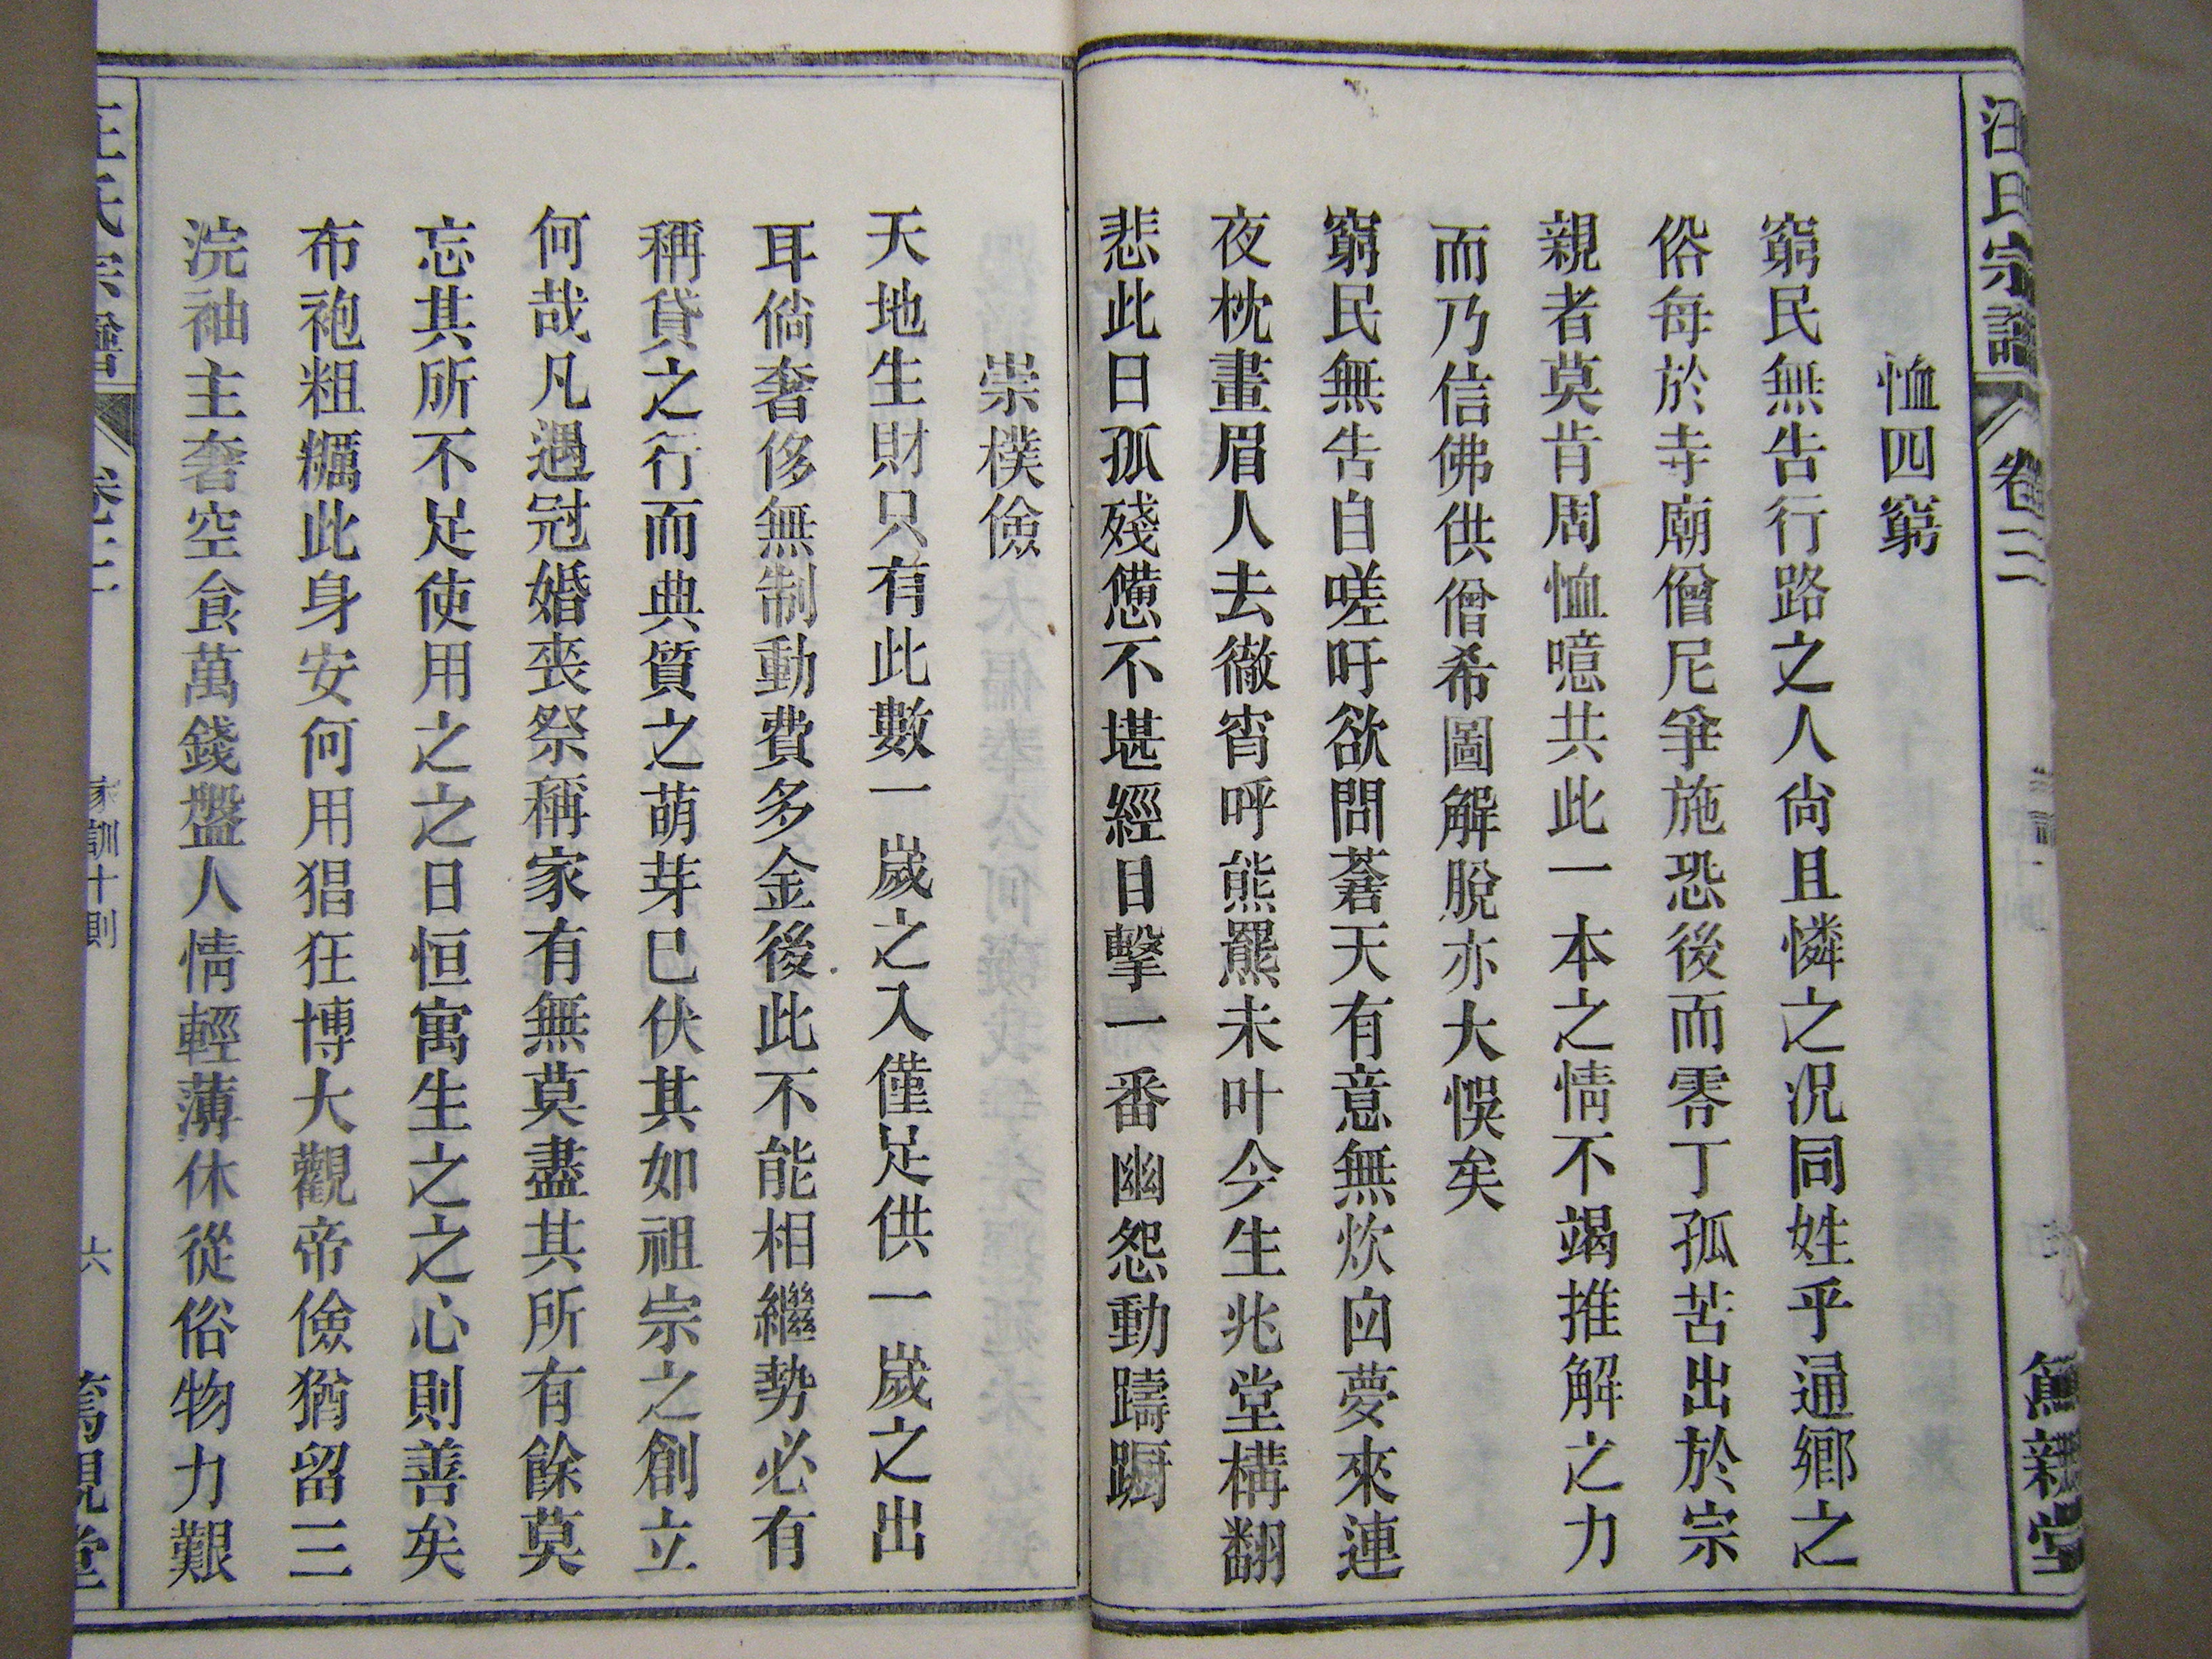 汪氏宗譜
卷三
篤親堂
恤四窮
窮民無告行路之人尙且憐之况同姓乎通鄉之
俗每於寺廟僧尼爭施恐後而零丁孤苦出於宗
親者莫肯周恤噫共此一本之情不竭推解之力
而乃信佛供僧希圖解脫亦大悞矣
窮民無告自嗟吁欲問蒼天有意無炊臼夢來連
夜枕畫眉人去徹宵呼熊羆未叶今生兆堂構翻
悲此日孤殘憊不堪經目擊一番幽怨動躊躕
崇樸儉
天地生財只有此數一歲之入僅足供一歲之出
耳倘奢侈無制動費多金後此不能相繼勢必有
稱貸之行而典質之萌芽已伏其如祖宗之創立
何哉凡遇冠婚喪祭稱家有無莫盡其所有餘莫
忘其所不足使用之之日恒寓生之之心則善矣
布袍粗糲此身安何用猖狂博大觀帝儉猶留三
浣袖主奢空食萬錢盤人情輕薄休從俗物力艱
汪氏宗譜
卷三
家訓十則
六
篤親堂